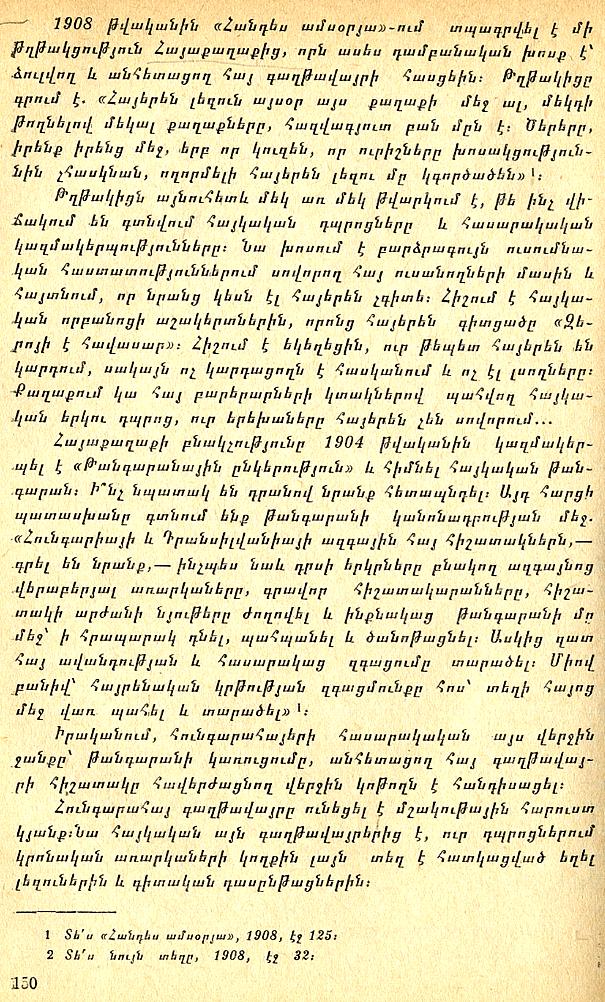 1908 թվականին «Հանդես ամսօրյա»-ում տպագրվել է մի
թղթակցություն Հայաքաղաքից, որն ասես դամբանական խոսք է՝
ձուլվող և անհետացող հայ գաղթավայրի հասցեին։ Թղթակիցը
գրում է. «Հայերեն լեզուն այսօր այս քաղաքի մեջ ալ, մեկդի
թողնելով մեկալ քաղաքները, հազվագյուտ բան մըն է։ Ծերերը,
իրենք իրենց մեջ, երբ որ կուզեն, որ ուրիշները խոսակցություն-
նին չհասկնան, ողորմելի հայերեն լեզու մը կգործածեն»¹։
Թղթակիցն այնուհետև մեկ առ մեկ թվարկում է, թե ինչ վի-
ճակում են գտնվում հայկական դպրոցները և հասարակական
կազմակերպությունները։ Նա խոսում է բարձրագույն ուսումնա-
կան հաստատություններում սովորող հայ ուսանողների մասին և
հայտնում, որ նրանց կեսն էլ հայերեն չգիտե։ Հիշում է հայկա-
կան որբանոցի աշակերտներին, որոնց հայերեն գիտցածը «Զե-
րոյի է հավասար»։ Հիշում է եկեղեցին, ուր թեպետ հայերեն են
կարդում, սակայն ոչ կարդացողն է հասկանում և ոչ էլ լսողները։
Քաղաքում կա հայ բարերարների կտակներով պահվող հայկա-
կան երկու դպրոց, ուր երեխաները հայերեն չեն սովորում...
Հայաքաղաքի բնակչությունը 1904 թվականին կազմակեր-
պել է «Թանգարանային ընկերություն» և հիմնել հայկական թան-
գարան։ Ի՞նչ նպատակ են դրանով նրանք հետապնդել։ Այդ հարցի
պատասխանը գտնում ենք թանգարանի կանոնադրության մեջ.
«Հունգարիայի և Դրանսիլվանիայի ազգային հայ հիշատակներն,—
գրել են նրանք,— ինչպես նաև դրսի երկրները բնակող ազգայնոց
վերաբերյալ առարկաները, գրավոր հիշատակարանները, հիշա-
տակի արժանի նյութերը ժողովել և ինքնակաց թանգարանի մը
մեջ՝ ի հրապարակ դնել, պահպանել և ծանոթացնել։ Ասկից զատ
հայ ավանդության և հասարակաց զգացումը տարածել։ Միով
բանիվ՝ հայրենական կրթության զգացմունքը հոս՝ տեղի հայոց
մեջ վառ պահել և տարածել»¹։
Իրականում, հունգարահայերի հասարակական այս վերջին
ջանքը՝ թանգարանի կառուցումը, անհետացող հայ գաղթավայ-
րի հիշատակը հավերժացնող վերջին կոթողն է հանդիսացել։
Հունգարահայ գաղթավայրը ունեցել է մշակութային հարուստ
կյանք։Նա հայկական այն գաղթավայրերից է, ուր դպրոցներում
կրոնական առարկաների կողքին լայն տեղ է հատկացված եղել
լեզուներին և գիտական դասընթացներին։
1 Տե՛ս «Հանդես ամսօրյա», 1908, էջ 125։
2 Տե՛ս նույն տեղը, 1908, էջ 32։
150